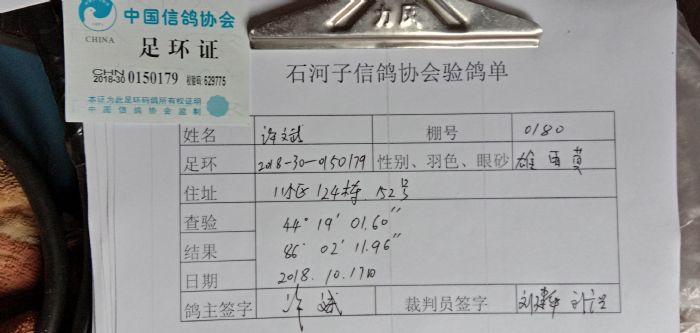 中国信鸽协会
CHINA
足环证
CHN
2018-30 0150179 校验码 629775
本证为此足环码鸽所有权证明
中国信鸽协会监制
力风
石河子信鸽协会验鸽单
姓名 许文斌 棚号 0180
足环 2018-30-0150179 性别、羽色、眼砂 雄 雨 黄
住址 11小区 124栋 52号
查验 44° 19′ 01.60″
结果 86° 02′ 11.96″
日期 2018.10.17日
鸽主签字 许文斌 裁判员签字